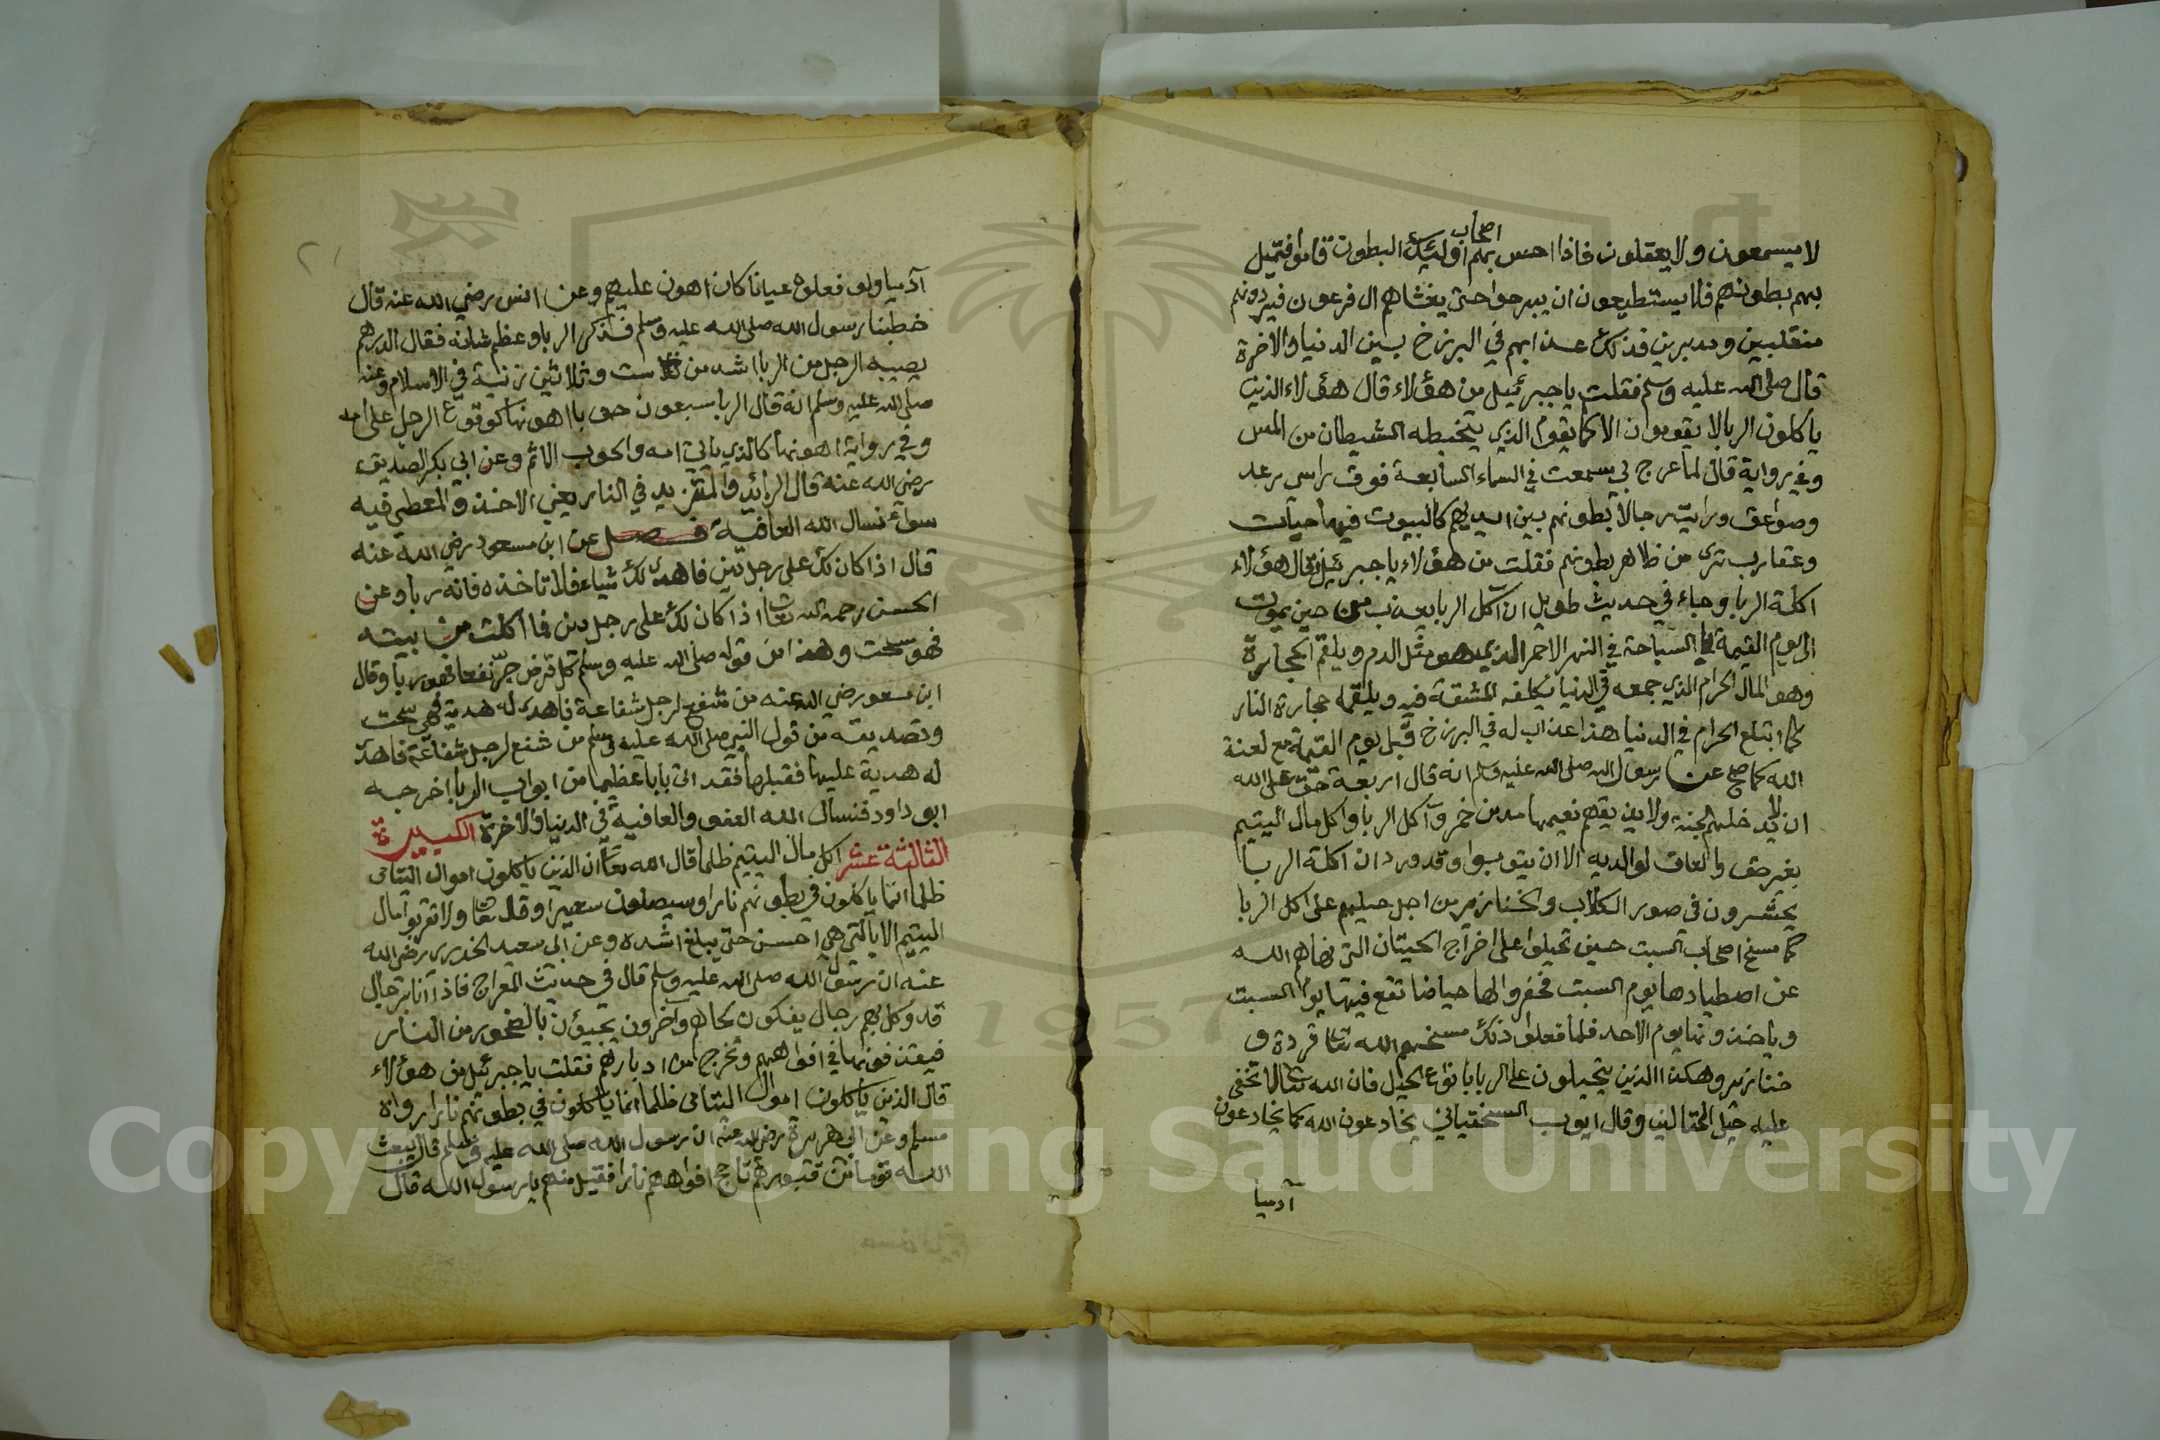 اصحاب
لا يسمعون ولا يعقلون فاذا احس بهم اولئك البطون قاموا فتميل
بهم بطونهم فلا يستطيعون ان يبرحوا حتى يغشاهم ال فرعون فيردونهم
منقلبين ومدبرين فذلك عذابهم في البرزخ بين الدنيا والاخرة
قال صلى الله عليه وسلم فقلت ياجبرئيل من هؤلاء قال هؤلاء الذين
ياكلون الربا لا يقومون الا كما يقوم الذي يتخبطه الشيطان من المس
وفي رواية قال لما عرج بي سمعت في السماء السابعة فوق راسي رعد
وصواعق ورايت رجالا بطونهم بين ايديهم كالبيوت فيها حيات
وعقارب ترى من ظاهر بطونهم فقلت من هؤلاء ياجبرئيل قال هؤلاء
اكلة الربا وجاء في حديث طويل ان آكل الربا يعذب من حين يموت
الى يوم القيمة بالسباحة في النهر الاحمر الذي هو مثل الدم ويلقم الحجارة
وهو المال الحرام الذي جمعه في الدنيا يكلفه المشقة فيه ويلقمه حجارة النار
كما ابتلع الحرام في الدنيا هذا عذاب له في البرزخ قبل يوم القيمة مع لعنة
الله كما صح عن رسول الله صلى الله عليه وسلم انه قال اربعة حق على الله
ان لا يدخلهم الجنة ولا يذيقهم نعيمها مدمن خمر وآكل الربا واكل مال اليتيم
بغير حق والعاق لوالديه الا ان يتوبوا وقد ورد ان اكلة الربا
يحشرون في صور الكلاب والخنازير من اجل حيلهم على اكل الربا
كما مسخ اصحاب السبت حين تحيلوا على اخراج الحيتان التي نهاهم الله
عن اصطيادها يوم السبت فحفروا لها حياضا تقع فيها يوم السبت
وياخذونها يوم الاحد فلما فعلوا ذلك مسخهم الله تعا قردة و
خنازير وهكذا الذين يتحيلون على الربا بانواع الحيل فان الله تعا لا تخفى
عليه حيل المحتالين وقال ايوب السختياني يخادعون الله كما يخادعون
آدميا
آدميا ولو فعلوه عيانا كان اهون عليهم وعن انس رضي الله عنه قال
خطبنا رسول الله صلى الله عليه وسلم فذكر الربا وعظم شانه فقال الدرهم
يصيبه الرجل من الربا اشد من ست وثلاثين زنية في الاسلام وعنه
صلى الله عليه وسلم انه قال الربا سبعون حوبا اهونها كوقوع الرجل على امه
وفي رواية اهونها كالذي ياتي امه والحوب الاثم وعن ابي بكر الصديق
رضي الله عنه قال الزائد والمتزيد في النار يعني الاخذ والمعطي فيه
سواء نسال الله العافية فصل عن ابن مسعود رضي الله عنه
قال اذا كان لك على رجل دين فاهدى لك شياء فلا تاخذه فانه ربا وعن
الحسن رحمه الله تعا اذا كان لك على رجل دين فما اكلت من بيته
فهو سحت وهذا من قوله صلى الله عليه وسلم كل قرض جر نفعا فهو ربا وقال
ابن مسعود رضي الله عنه من شفع لرجل شفاعة فاهدى له هدية فهي سحت
وتصديقه من قول النبي صلى الله عليه وسلم من شفع لرجل شفاعة فاهدى
له هدية عليها فقبلها فقد اتى بابا عظيما من ابواب الربا اخرجه
ابو داود فنسال الله العفو والعافية في الدنيا والاخرة الكبيرة
الثالثة عشر اكل مال اليتيم ظلما قال الله تعا ان الذين ياكلون اموال اليتامى
ظلما انما ياكلون في بطونهم نارا وسيصلون سعيرا وقال تعا ولا تقربوا مال
اليتيم الا بالتي هي احسن حتى يبلغ اشده وعن ابي سعيد الخدري رضي الله
عنه ان رسول الله صلى الله عليه وسلم قال في حديث المعراج فاذا انا برجال
قد وكل بهم رجال يفكون لحاهم وآخرون يجيؤن بالصخور من النار
فيقذفونها في افواههم وتخرج من ادبارهم فقلت ياجبرئيل من هؤلاء
قال الذين ياكلون اموال اليتامى ظلما انما ياكلون في بطونهم نارا رواه
مسلم وعن ابي هريرة رضي الله عنه ان رسول الله صلى الله عليه وسلم قال يبعث
الله قوما من قبورهم تاجج افواههم نارا فقيل منهم يا رسول الله قال
1957
Copyright © King Saud University